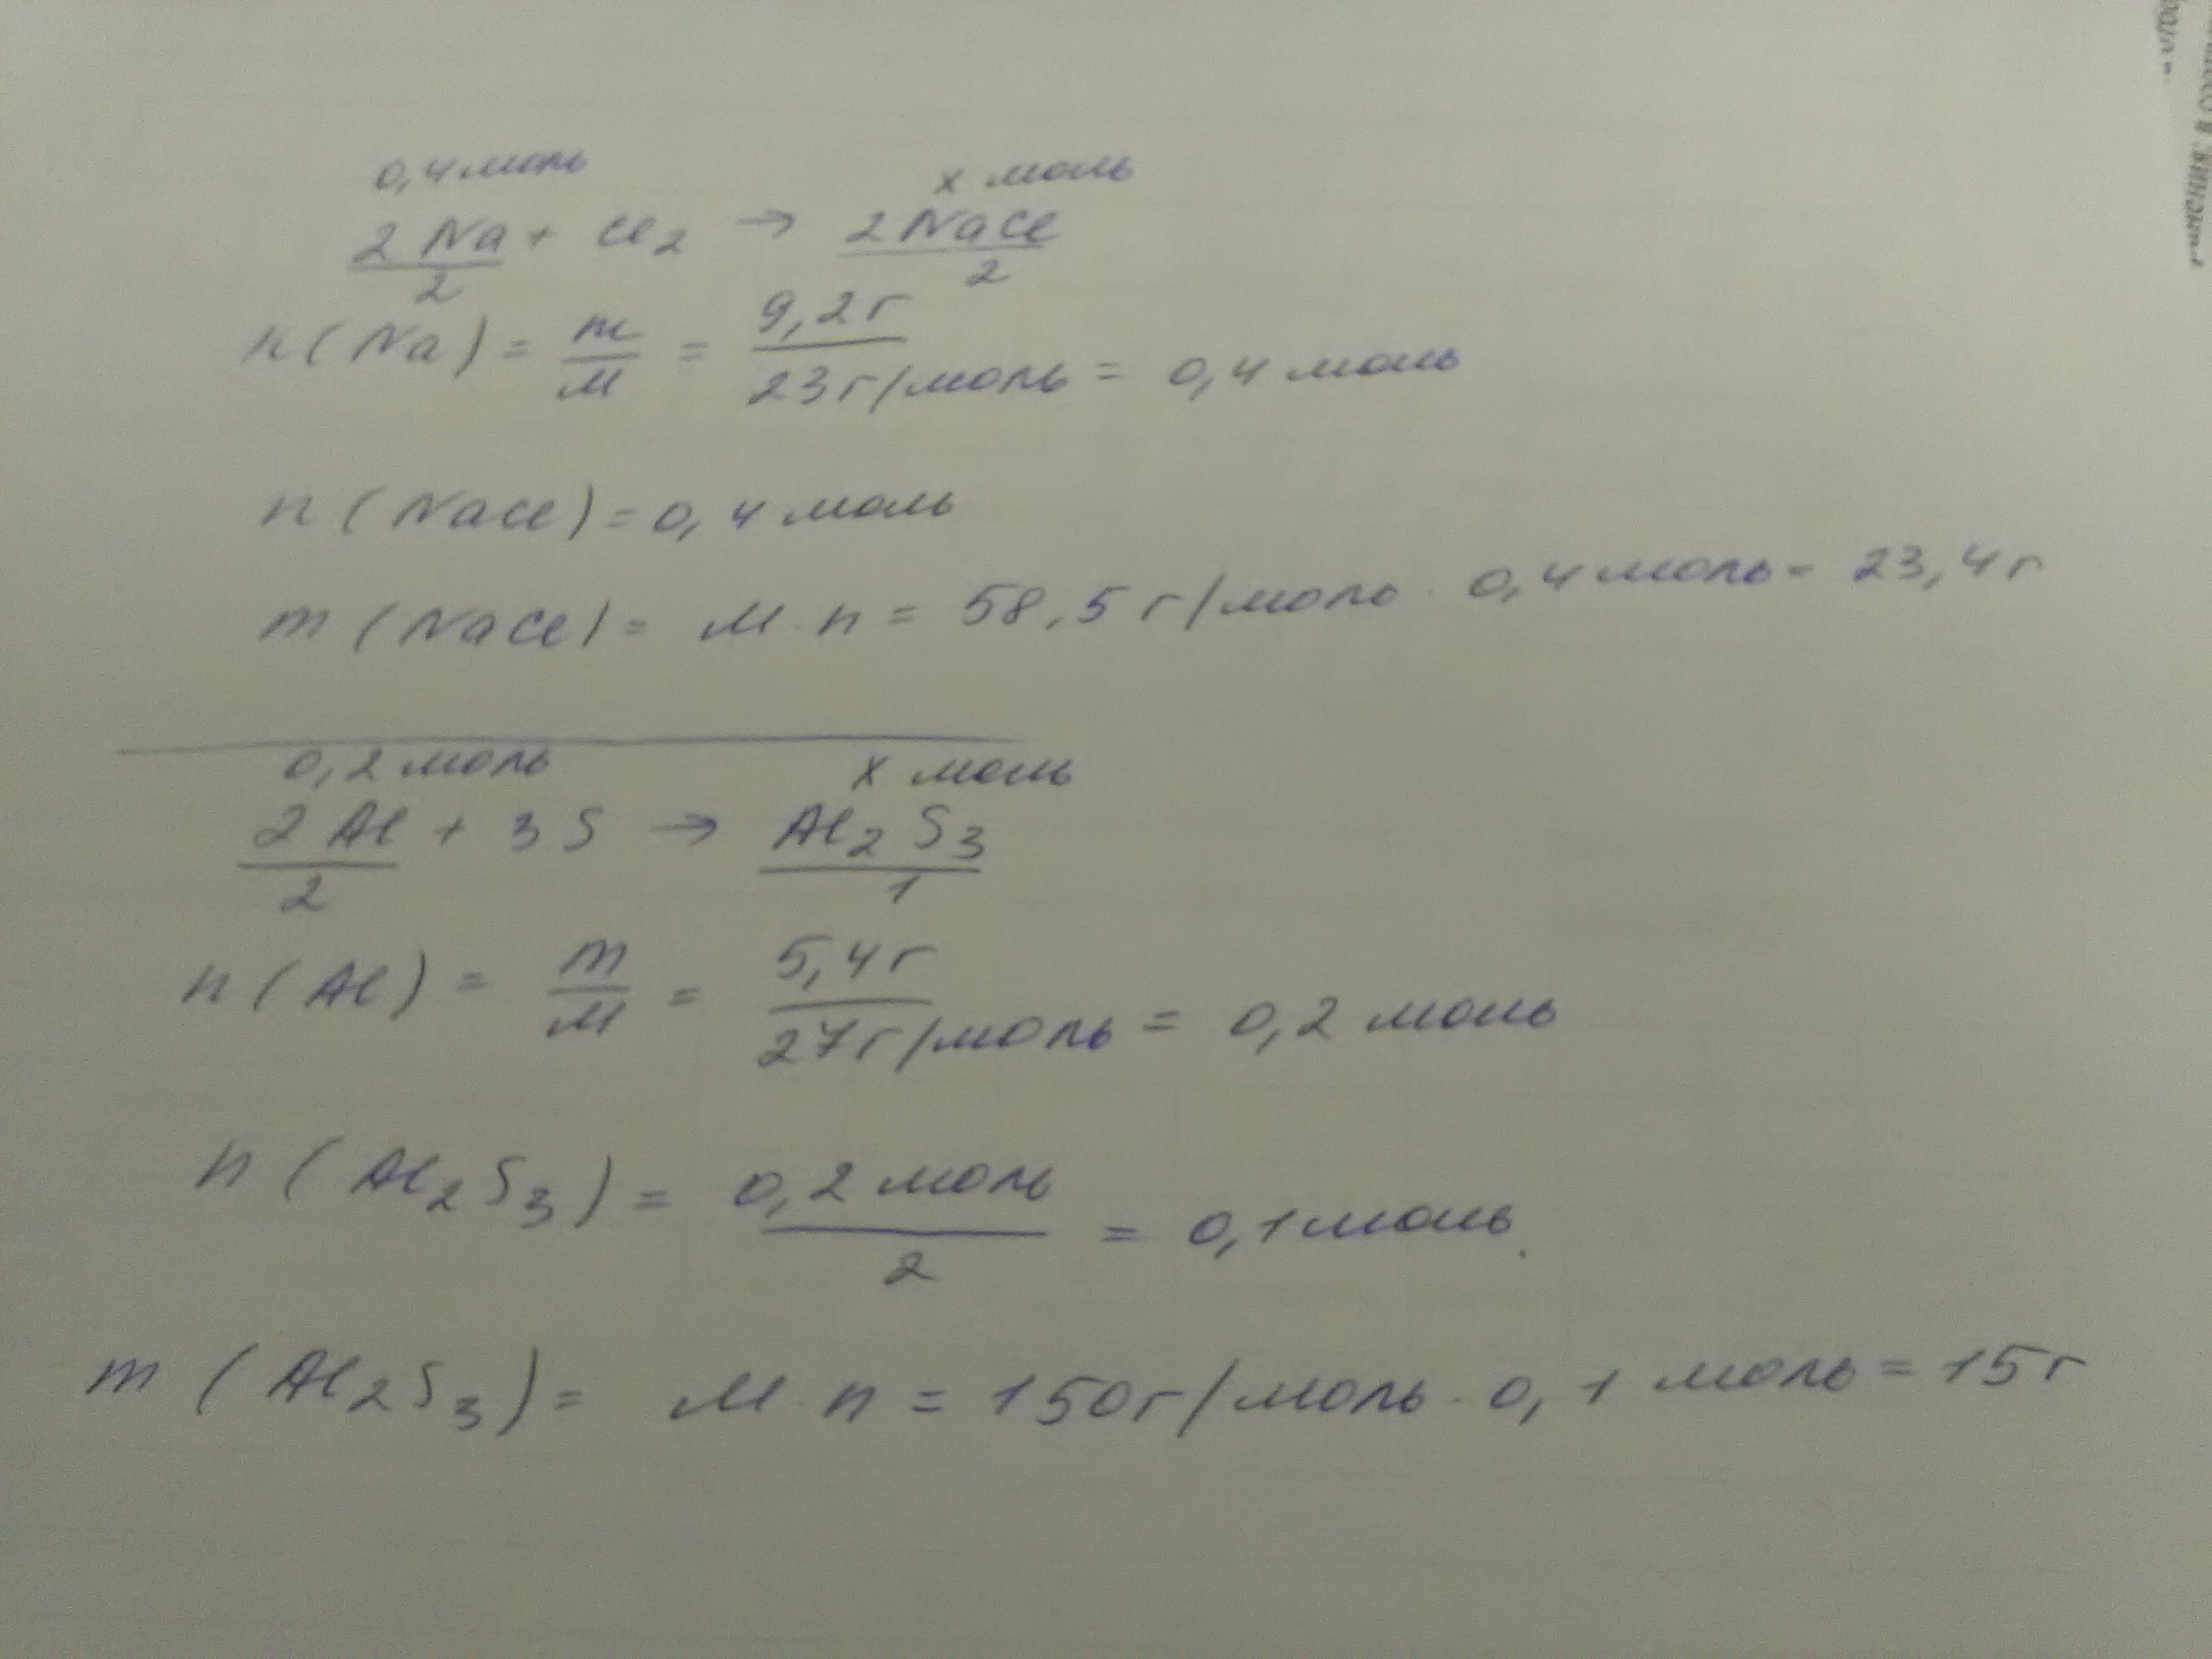 0,4 моль x моль
2Na + Cl2 → 2NaCl
2 2
n(Na) = m/M = 9,2г/23г/моль = 0,4 моль
n(NaCl) = 0,4 моль
m(NaCl) = M · n = 58,5 г/моль · 0,4 моль = 23,4 г
0,2 моль x моль
2Al + 3S → Al2S3
2 1
n(Al) = m/M = 5,4г/27г/моль = 0,2 моль
n(Al2S3) = 0,2 моль/2 = 0,1 моль.
m(Al2S3) = M · n = 150г/моль · 0,1 моль = 15г